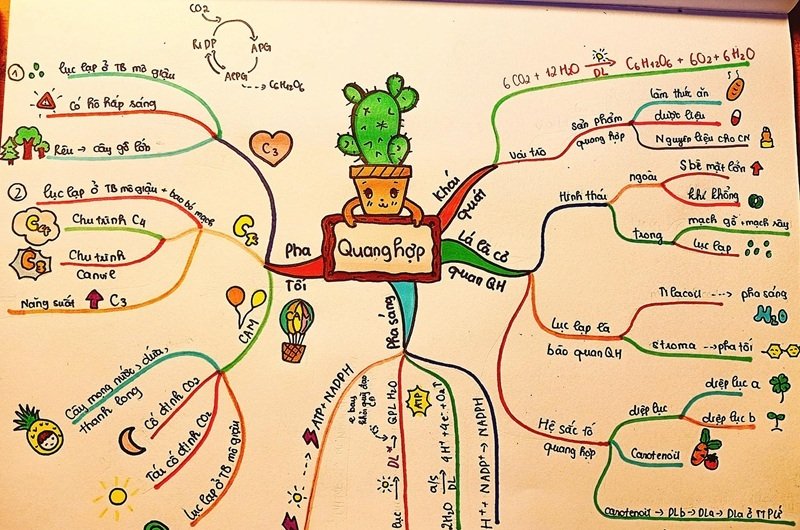 Quang hợp
Khái quát
6CO2 + 12H2O DL C6H12O6 + 6O2 + 6H2O
Vai trò
Sản phẩm
quang hợp
làm thức ăn
dược liệu
Nguyên liệu cho CN
Lá là cơ
quan QH
Hình thái
ngoài
S bề mặt lớn
khí khổng
trong
mạch gỗ + mạch rây
lục lạp
Lục lạp là
bào quan QH
Tilacoit → pha sáng
H2O
stroma → pha tối
Hệ sắc tố
quang hợp
diệp lục
diệp lục a
diệp lục b
Carotenoit
carotenoit → DLb → DLa → DLa ở
Pha sáng
ATP + NADPH
e bay
khỏi quỹ đạo
DL* → QPL H2O
ATP
a/s
2H2O DL 4H+ + 4e- + O2↑
H+ + NADP+ → NADPH
Pha
Tối
C3
CO2
RiDP
APG
AlPG
C6H12O6
1
lục lạp ở TB mô giậu
Có hô hấp sáng
Rêu → cây gỗ lớn
C4
2
lục lạp ở TB mô giậu + bao bó mạch
C4
Chu trình C4
C3
Chu trình
Canvil
Năng suất ↑ C3
CAM
CAM
Cây mọng nước, dứa,
thanh long
Cố định CO2
Tái cố định CO2
Lục lạp ở TB mô giậu